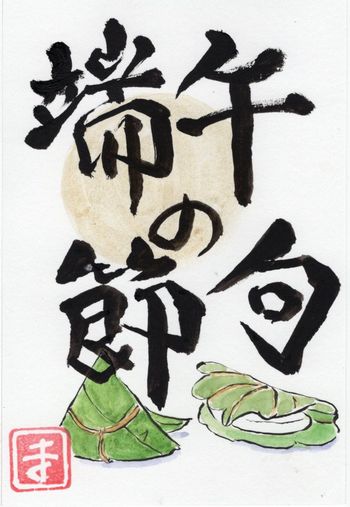 端午
の
節句
ま